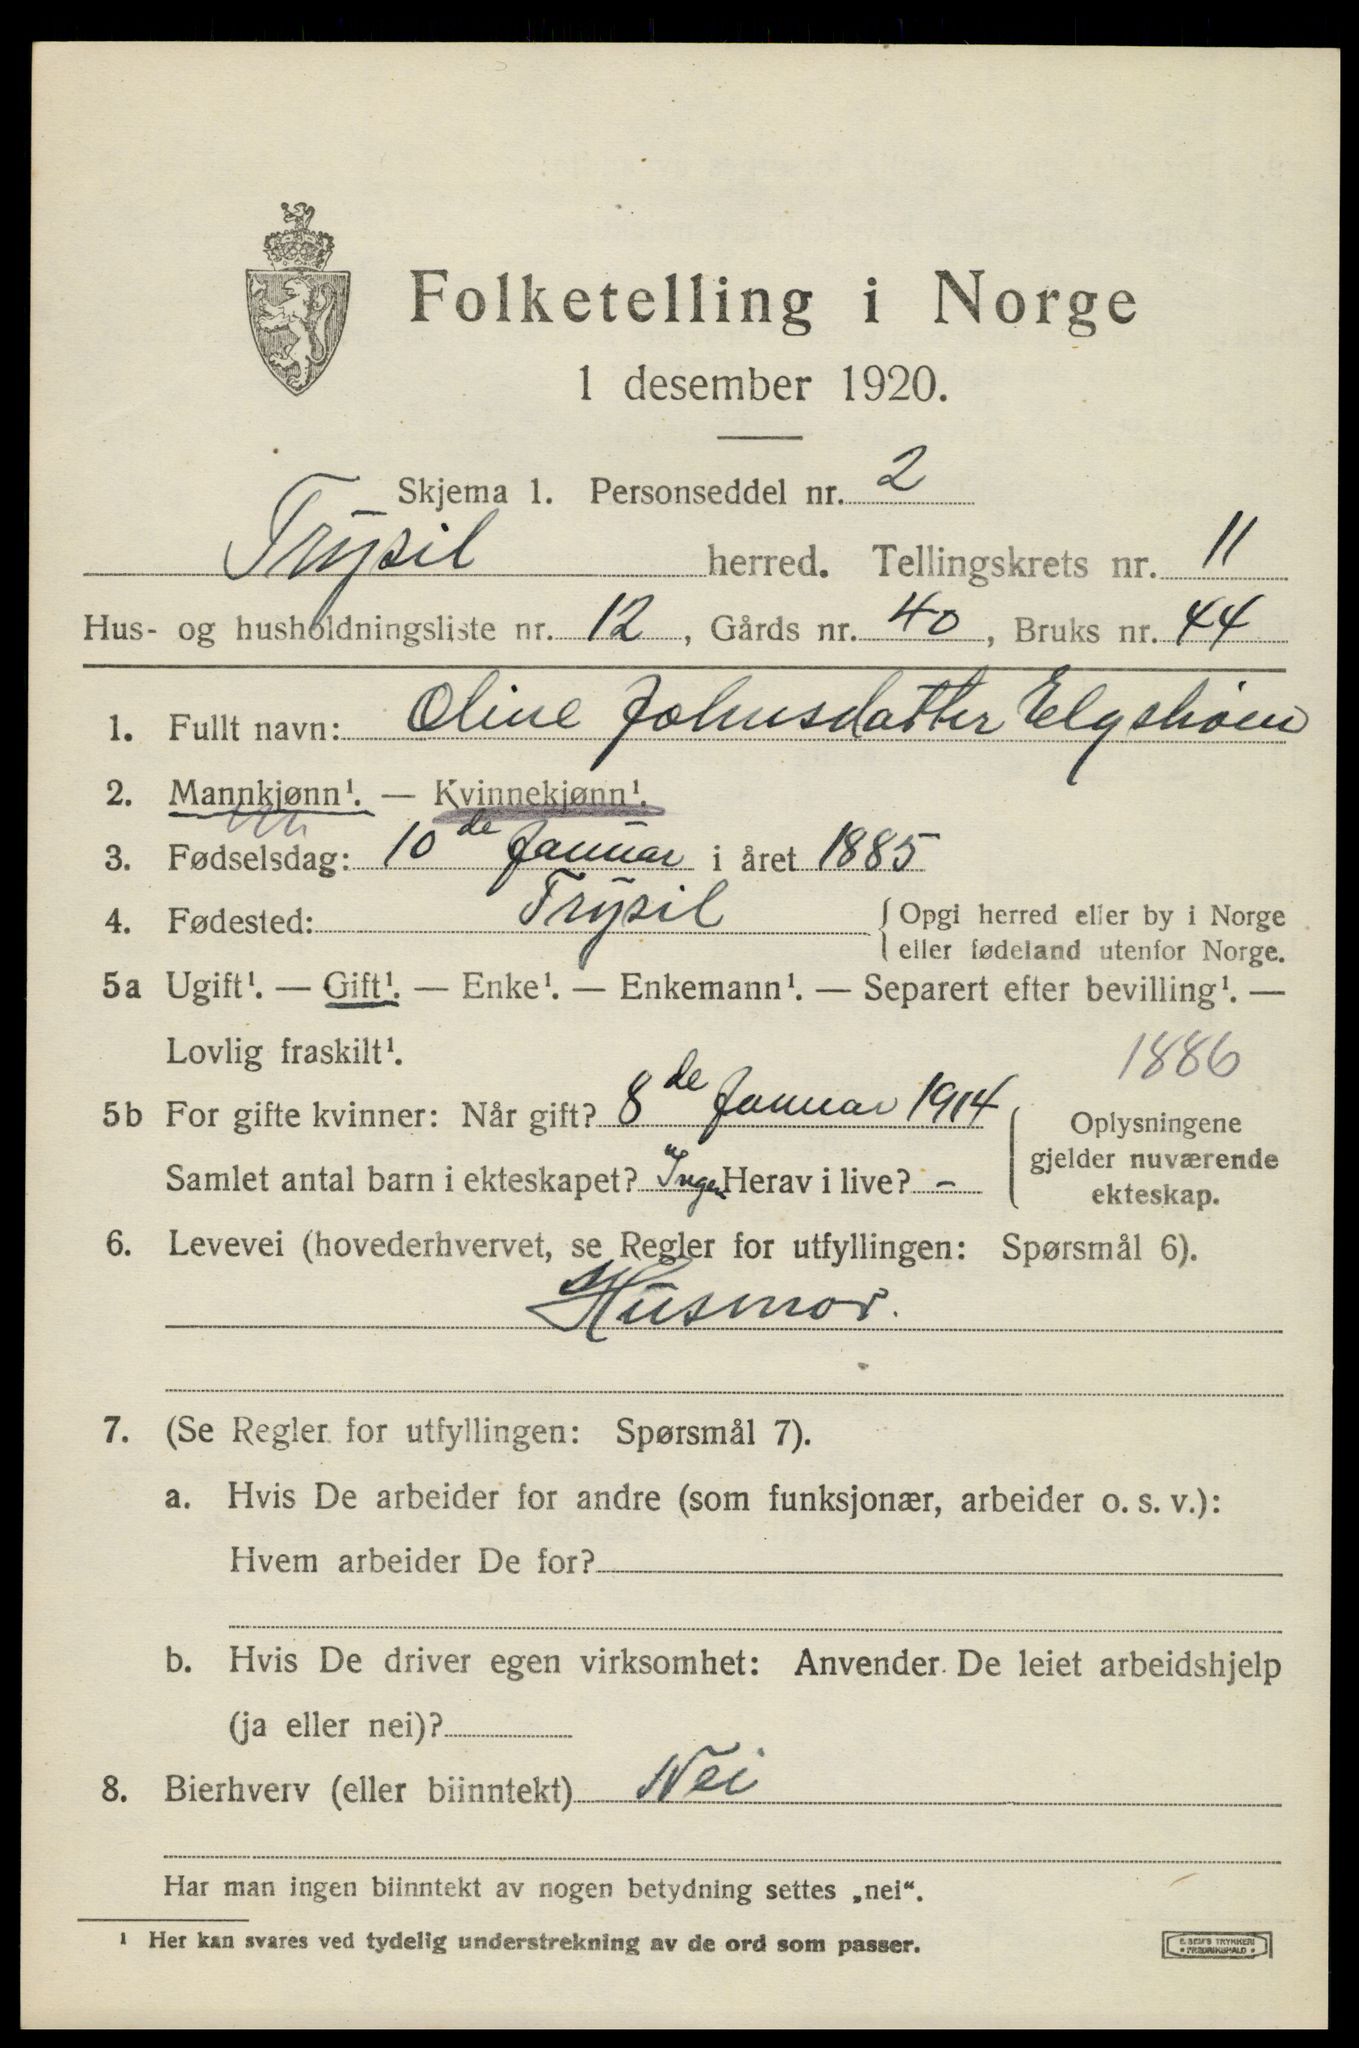 Folketelling i Norge
1 desember 1920.
Skjema 1. Personseddel nr. 2
Trysil herred. Tellingskrets nr. 11
Hus- og husholdningsliste nr. 12, Gårds nr. 40, Bruks nr. 44
1. Fullt navn: Oline Johnsdatter
2. Mannkjønn¹. — Kvinnekjønn¹.
3. Fødselsdag: 10de Januar i året 1885
4. Fødested: Trysil { Opgi herred eller by i Norge
eller fødeland utenfor Norge.
5a Ugift¹. — Gift¹. — Enke¹. — Enkemann¹. — Separert efter bevilling¹. —
Lovlig fraskilt¹.
1886
5b For gifte kvinner: Når gift? 8de Januar 1914
Samlet antal barn i ekteskapet? Ingen Herav i live? –
( Oplysningene
gjelder nuværende
ekteskap.
6. Levevei (hovederhvervet, se Regler for utfyllingen: Spørsmål 6).
Husmor.
7. (Se Regler for utfyllingen: Spørsmål 7).
a. Hvis De arbeider for andre (som funksjonær, arbeider o. s. v.):
Hvem arbeider De for?
b. Hvis De driver egen virksomhet: Anvender De leiet arbeidshjelp
(ja eller nei)?
8. Bierhverv (eller biinntekt) Nei
Har man ingen biinntekt av nogen betydning settes „nei“.
¹ Her kan svares ved tydelig understrekning av de ord som passer.
E. SEM'S TRYKKERI
* FREDRIKSHALD *